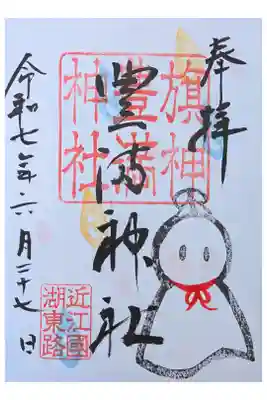 奉拝
旗神
豊満
神社
豊満神社
令和七年六月二十七日
近江國
湖東路